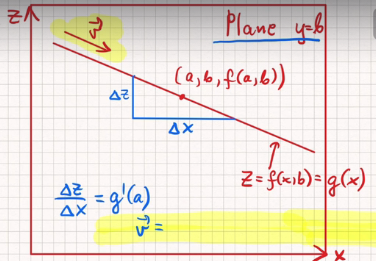 Z
v⃗
Plane y=b
(a, b, f(a, b))
Δz
Δx
z = f(x,b) = g(x)
Δz/Δx = g'(a)
v⃗ =
x